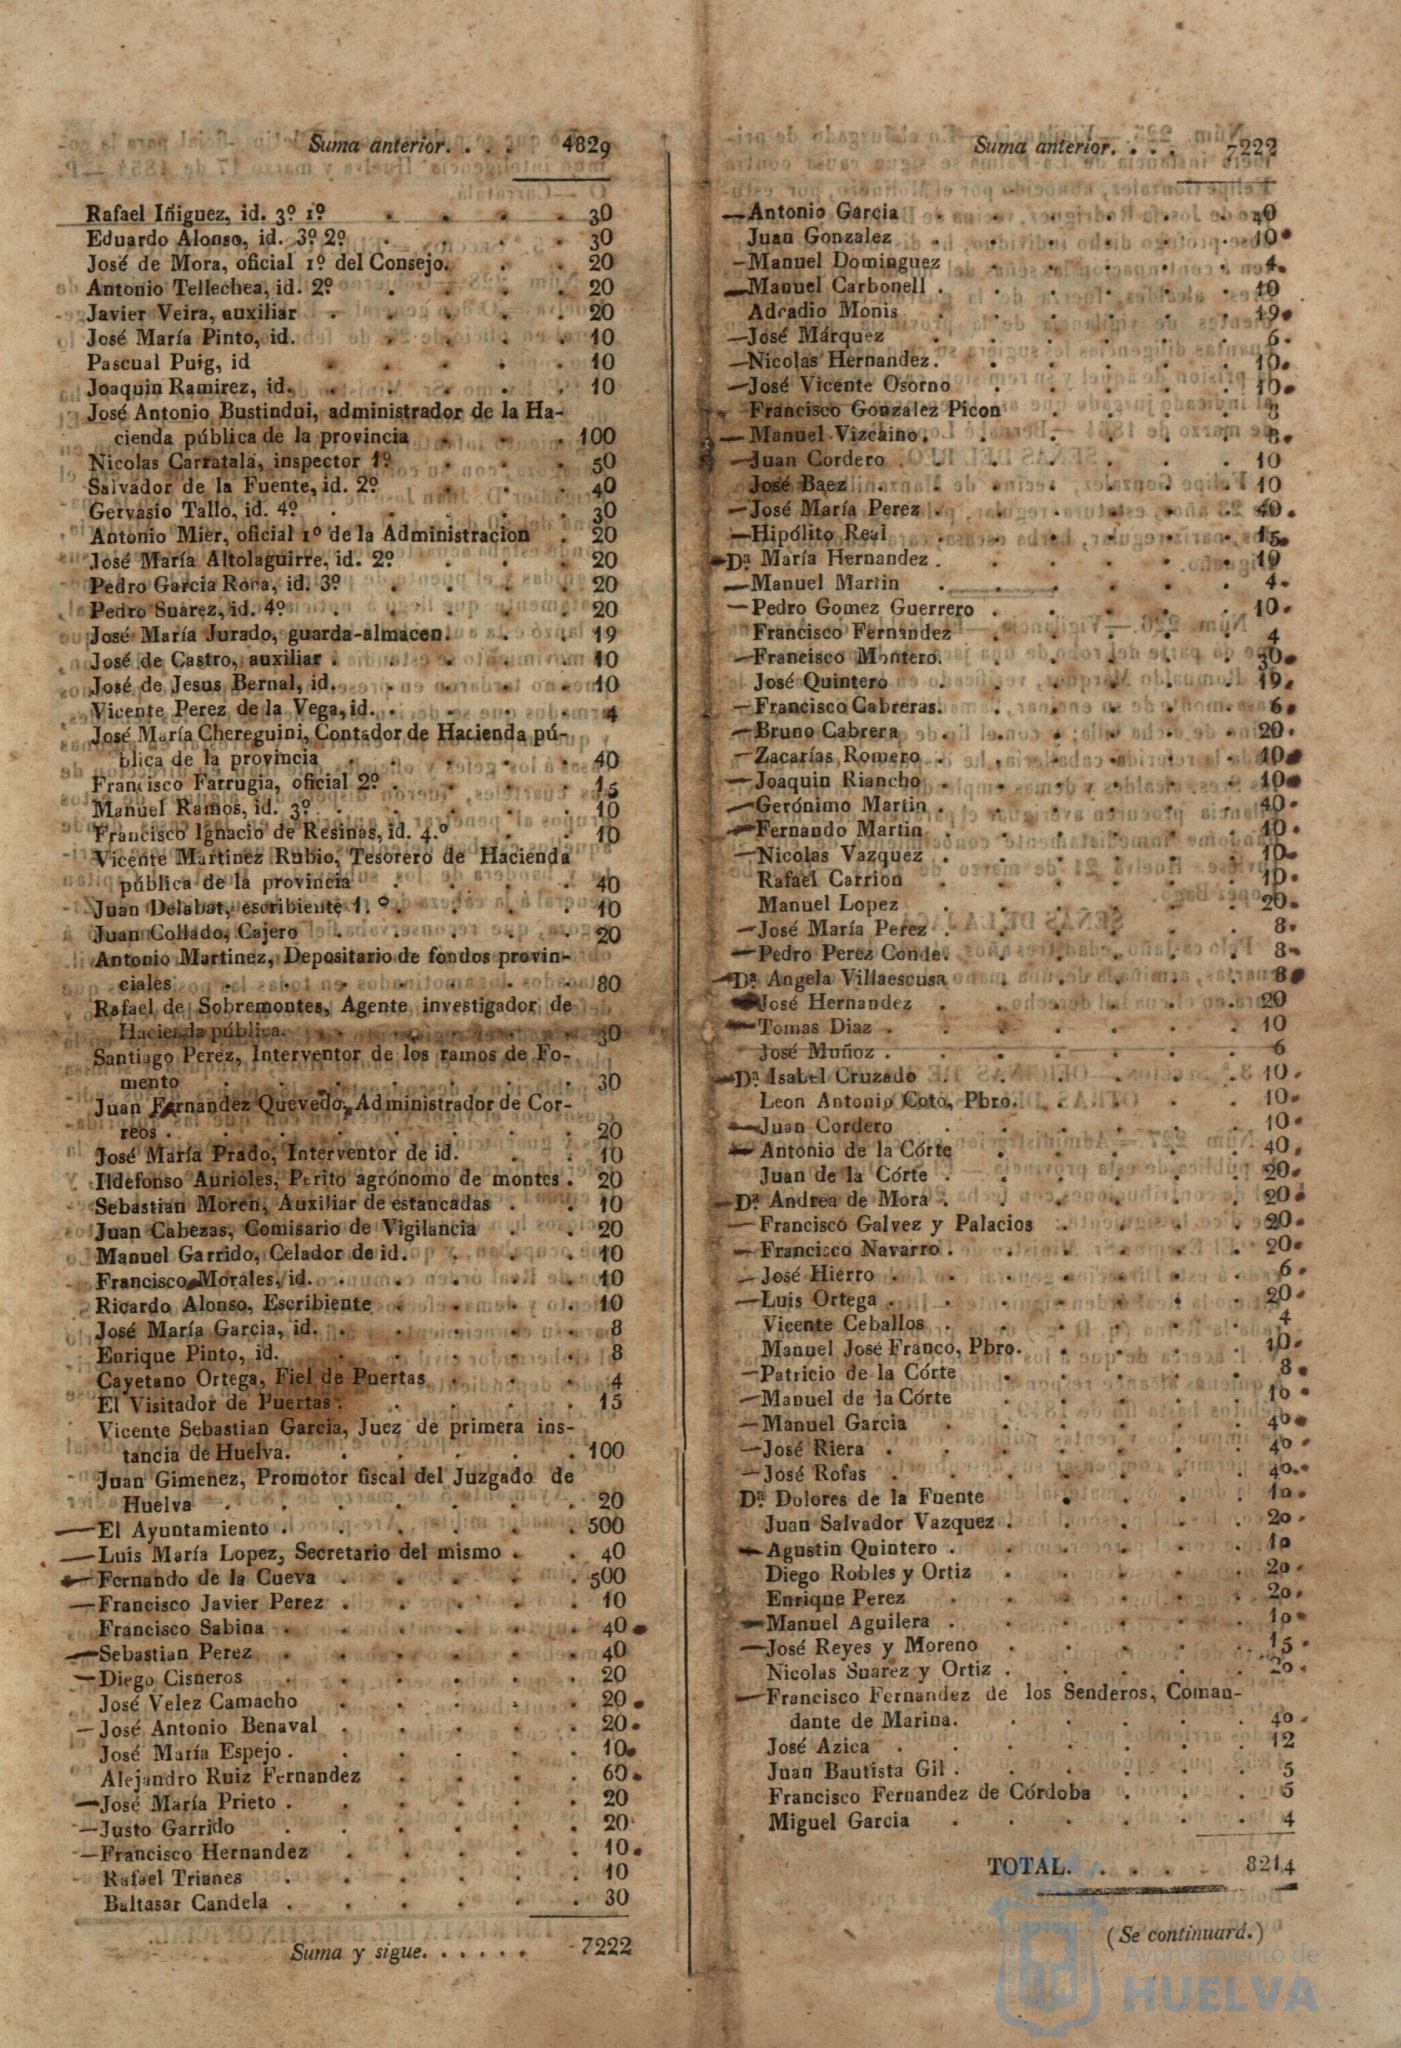 Suma anterior. . . . 4829
Rafael Iñiguez, id. 3º 1º . . . . 30
Eduardo Alonso, id. 3º 2º . . . . 30
José de Mora, oficial 1º del Consejo. . . 20
Antonio Tellechea, id. 2º . . . . 20
Javier Veira, auxiliar . . . . . 20
José María Pinto, id. . . . . 10
Pascual Puig, id . . . . . 10
Joaquin Ramirez, id. . . . . . 10
José Antonio Bustindui, administrador de la Ha-
cienda pública de la provincia . . . 100
Nicolas Carratalá, inspector 1º . . . 50
Salvador de la Fuente, id. 2º . . . 40
Gervasio Tallo, id. 4º . . . . . 30
Antonio Mier, oficial 1º de la Administracion . 20
José María Altolaguirre, id. 2º . . . 20
Pedro Garcia Roca, id. 3º . . . . 20
Pedro Suarez, id. 4º . . . . . 20
José María Jurado, guarda-almacen. . . 19
José de Castro, auxiliar . . . . . 10
José de Jesus Bernal, id. . . . . 10
Vicente Perez de la Vega, id. . . . . 4
José María Chereguini, Contador de Hacienda pú-
blica de la provincia . . . . . 40
Francisco Farrugia, oficial 2º . . . . 15
Manuel Ramos, id. 3º . . . . . 10
Francisco Ignacio de Resinas, id. 4.º . . 10
Vicente Martinez Rubio, Tesorero de Hacienda
pública de la provincia . . . . 40
Juan Delabat, escribiente 1.º . . . . 10
Juan Collado, Cajero . . . . . 20
Antonio Martinez, Depositario de fondos provin-
ciales . . . . . . . 80
Rafael de Sobremontes, Agente investigador de
Hacienda pública. . . . . . 30
Santiago Perez, Interventor de los ramos de Fo-
mento . . . . . . . 30
Juan Fernandez Quevedo, Administrador de Cor-
reos . . . . . . . . 20
José María Prado, Interventor de id. . . 10
Ildefonso Aurioles, Perito agrónomo de montes . 20
Sebastian Moren, Auxiliar de estancadas . . 10
Juan Cabezas, Comisario de Vigilancia . . 20
Manuel Garrido, Celador de id. . . . 10
Francisco Morales, id. . . . . . 10
Ricardo Alonso, Escribiente . . . . 10
José María Garcia, id. . . . . . 8
Enrique Pinto, id. . . . . . 8
Cayetano Ortega, Fiel de Puertas . . . 4
El Visitador de Puertas . . . . 15
Vicente Sebastian Garcia, Juez de primera ins-
tancia de Huelva. . . . . . 100
Juan Gimenez, Promotor fiscal del Juzgado de
Huelva . . . . . . . 20
—El Ayuntamiento . . . . . . 500
—Luis María Lopez, Secretario del mismo . . 40
—Fernando de la Cueva . . . . . 500
—Francisco Javier Perez . . . . . 10
Francisco Sabina . . . . . . 40
—Sebastian Perez . . . . . . 40
—Diego Cisneros . . . . . . 20
José Velez Camacho . . . . . 20
—José Antonio Benaval . . . . . 20
José María Espejo . . . . . . 10
Alejandro Ruiz Fernandez . . . . 60
—José María Prieto . . . . . . 20
—Justo Garrido . . . . . . 20
—Francisco Hernandez . . . . . 10
Rafael Trianes . . . . . . 10
Baltasar Candela . . . . . . 30
Suma y sigue. . . . . . 7222
Suma anterior. . . . 7222
—Antonio Garcia . . . . . 40
Juan Gonzalez . . . . . 10
—Manuel Dominguez . . . . . 4
—Manuel Carbonell . . . . . 10
Adcadio Monis . . . . . 19
—José Márquez . . . . . 6
—Nicolas Hernandez . . . . . 10
—José Vicente Osorno . . . . 10
Francisco Gonzalez Picon . . . . 8
—Manuel Vizcaino . . . . . . 8
—Juan Cordero . . . . . . 10
José Baez . . . . . . 10
—José María Perez . . . . . . 40
—Hipólito Real . . . . . . 15
—Dª María Hernandez . . . . . . 19
—Manuel Martin . . . . . . 4
—Pedro Gomez Guerrero . . . . . 10
Francisco Fernandez . . . . . 4
—Francisco Montero. . . . . . 30
José Quintero . . . . . . 19
—Francisco Cabreras. . . . . . 6
—Bruno Cabrera . . . . . . 20
—Zacarías Romero . . . . . . 10
—Joaquin Riancho . . . . . . 10
—Gerónimo Martin . . . . . . 40
—Fernando Martin . . . . . . 10
—Nicolas Vazquez . . . . . . 10
Rafael Carrion . . . . . . 10
Manuel Lopez . . . . . . 20
—José María Perez . . . . . . 8
—Pedro Perez Conde. . . . . . 8
—Dª Angela Villaescusa . . . . . 8
José Hernandez . . . . . . 20
—Tomas Diaz . . . . . . . 10
José Muñoz . . . . . . . 6
—Dª Isabel Cruzado . . . . . . 10
Leon Antonio Coto, Pbro. . . . . 10
—Juan Cordero . . . . . . 10
—Antonio de la Córte . . . . . 40
Juan de la Córte . . . . . . 20
—Dª Andrea de Mora . . . . . . 20
—Francisco Galvez y Palacios . . . . 20
—Francisco Navarro . . . . . . 20
—José Hierro . . . . . . . 6
—Luis Ortega . . . . . . . 20
Vicente Ceballos . . . . . . 4
Manuel José Franco, Pbro. . . . . 10
—Patricio de la Córte . . . . . 8
—Manuel de la Córte . . . . . 10
—Manuel Garcia . . . . . . 40
—José Riera . . . . . . . 40
—José Rofas . . . . . . . 40
Dª Dolores de la Fuente . . . . 10
Juan Salvador Vazquez . . . . . 20
—Agustin Quintero . . . . . . 10
Diego Robles y Ortiz . . . . . 20
Enrique Perez . . . . . . 20
—Manuel Aguilera . . . . . . 10
—José Reyes y Moreno . . . . . 15
Nicolas Suarez y Ortiz . . . . . 20
—Francisco Fernandez de los Senderos, Coman-
dante de Marina. . . . . . 40
José Azica . . . . . . . 12
Juan Bautista Gil . . . . . . 5
Francisco Fernandez de Córdoba . . . 5
Miguel Garcia . . . . . . 4
TOTAL. . . . . 8214
(Se continuará.)
Ayuntamiento de
HUELVA